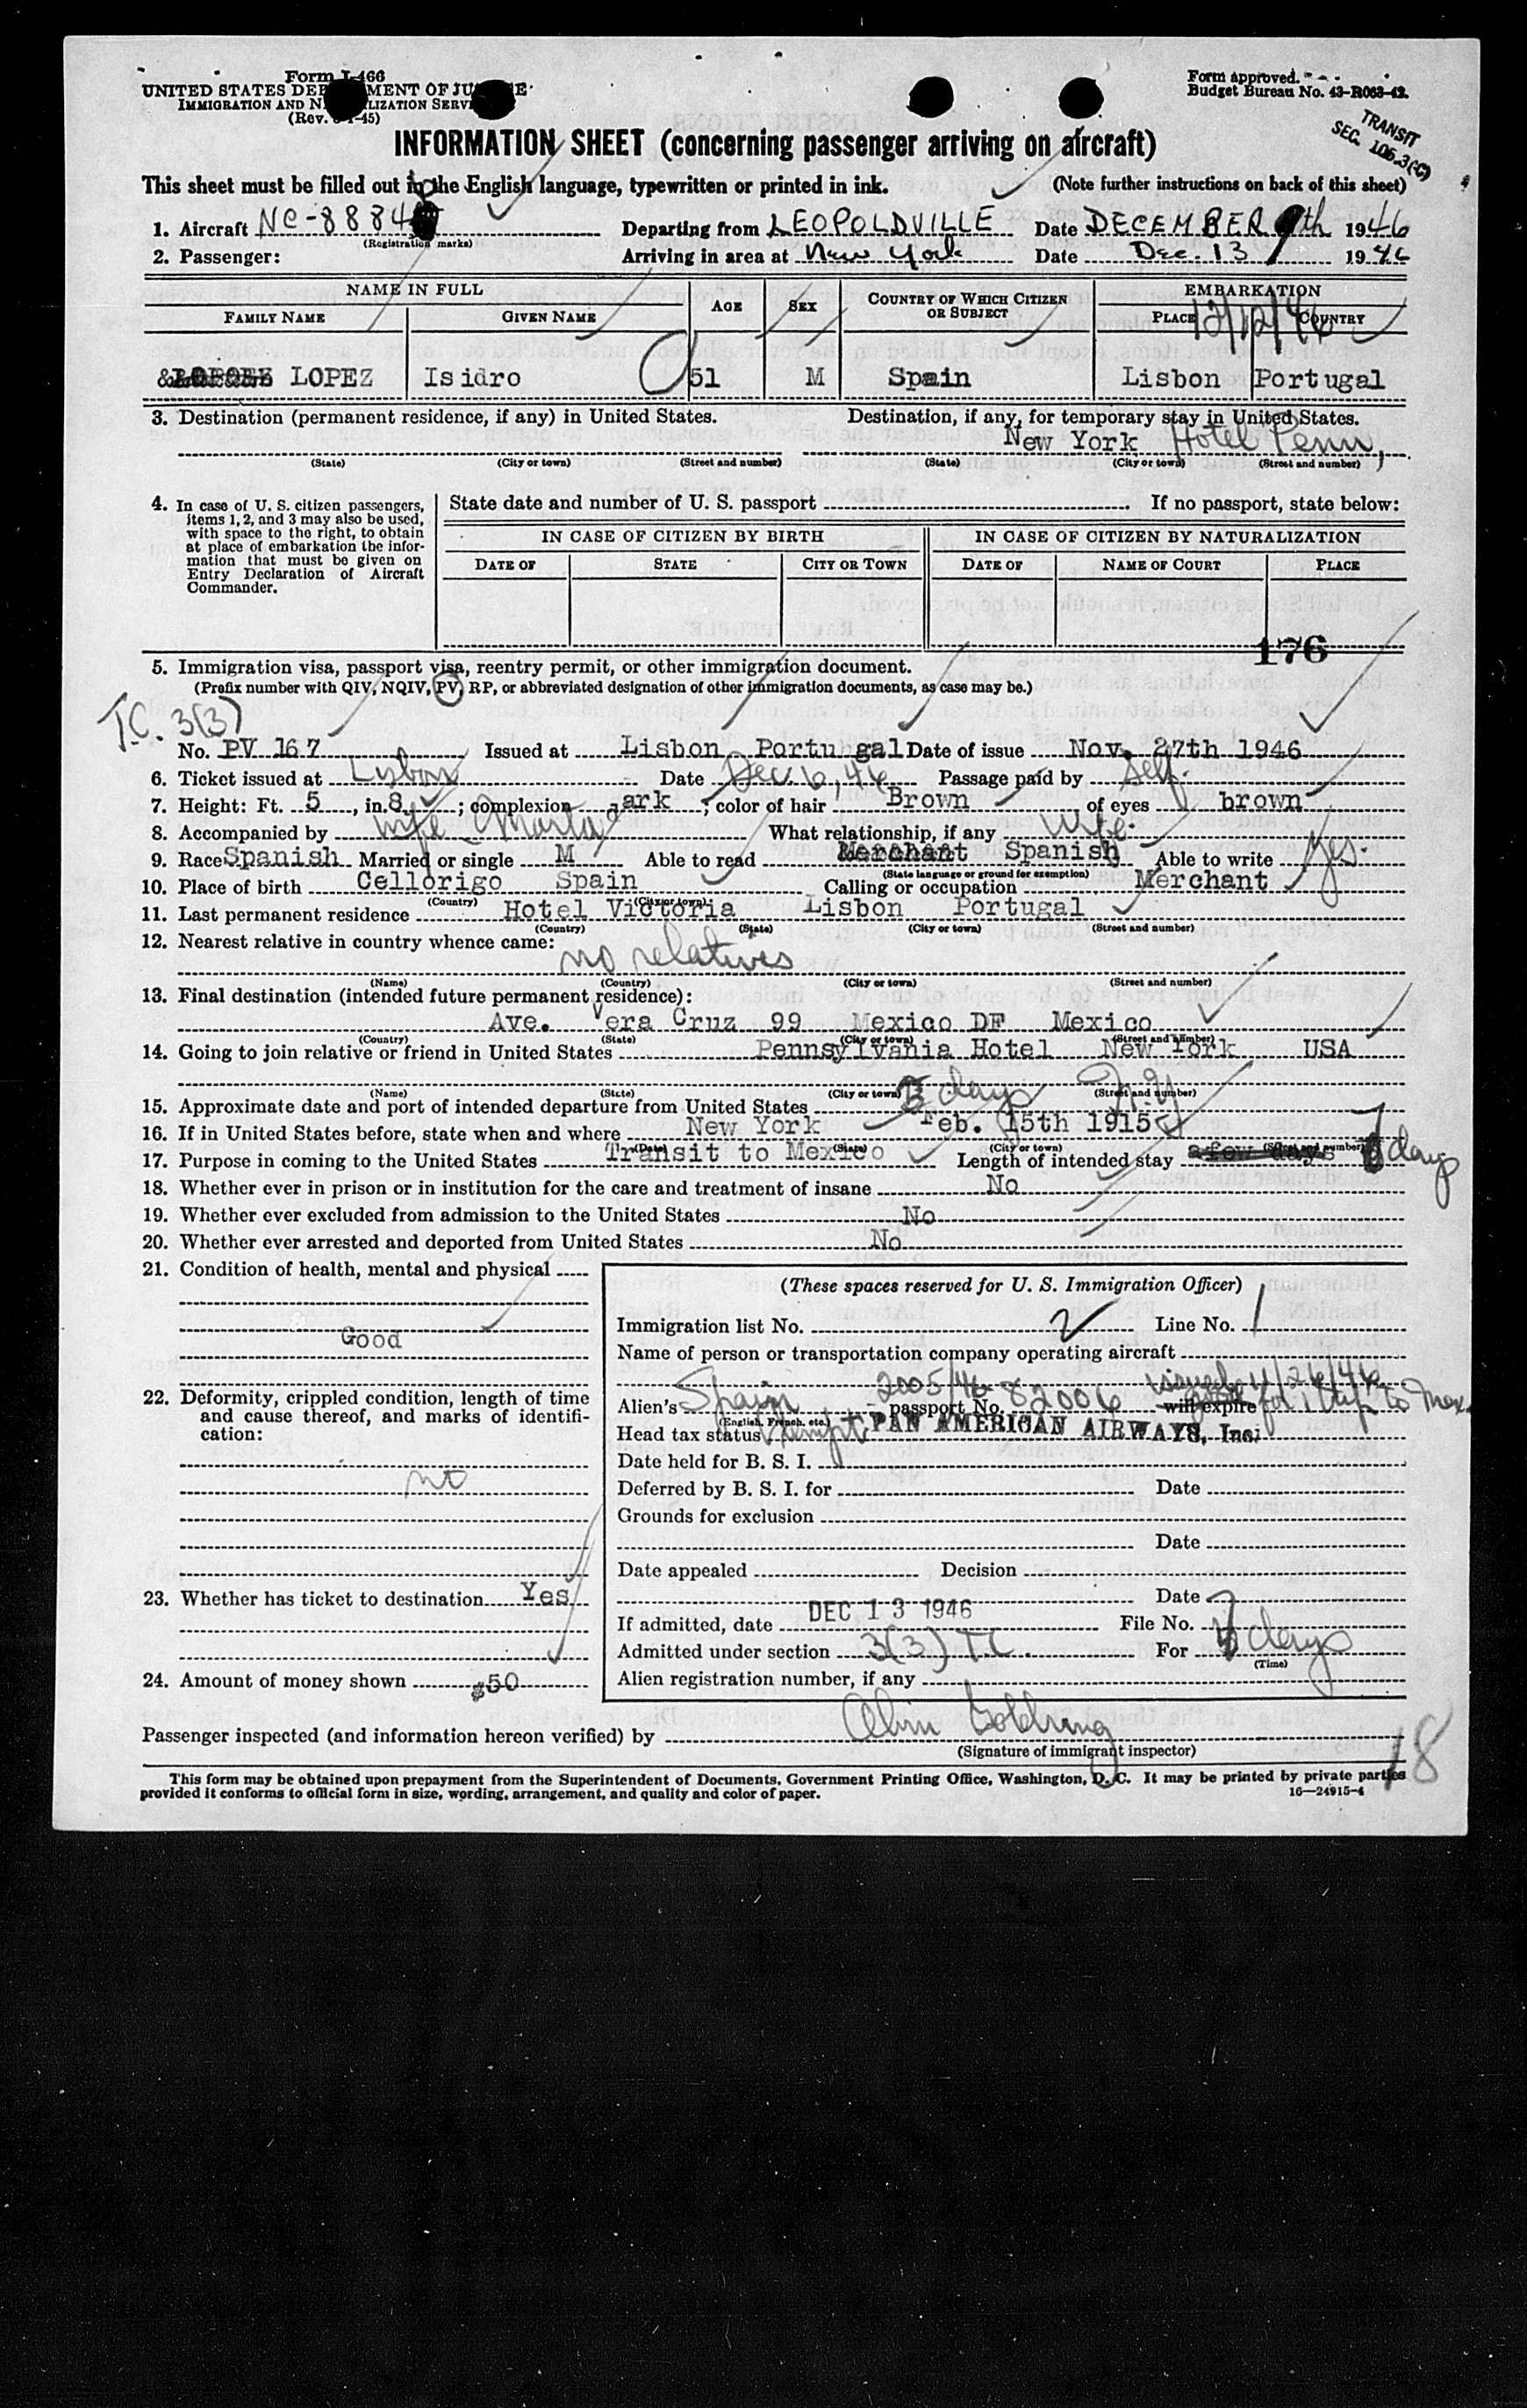 Form I-466
UNITED STATES DEPARTMENT OF JUSTICE
IMMIGRATION AND NATURALIZATION SERVICE
(Rev. -45)
Form approved.
Budget Bureau No. 43-R063-42.
TRANSIT
SEC. 105.3(C)
INFORMATION SHEET (concerning passenger arriving on aircraft)
This sheet must be filled out in the English language, typewritten or printed in ink. (Note further instructions on back of this sheet)
1. Aircraft NC-8884 Departing from LEOPOLDVILLE Date DECEMBER 9th 1946
(Registration marks)
2. Passenger: Arriving in area at New York Date Dec. 13 1946
NAME IN FULL AGE SEX COUNTRY OF WHICH CITIZEN OR SUBJECT EMBARKATION
FAMILY NAME GIVEN NAME PLACE COUNTRY
12/12/46
LOPEZ Isidro 51 M Spain Lisbon Portugal
3. Destination (permanent residence, if any) in United States. Destination, if any, for temporary stay in United States.
New York Hotel Penn,
(State) (City or town) (Street and number) (State) (City or town) (Street and number)
4. In case of U. S. citizen passengers, items 1, 2, and 3 may also be used, with space to the right, to obtain at place of embarkation the information that must be given on Entry Declaration of Aircraft Commander.
State date and number of U. S. passport If no passport, state below:
IN CASE OF CITIZEN BY BIRTH IN CASE OF CITIZEN BY NATURALIZATION
DATE OF STATE CITY OR TOWN DATE OF NAME OF COURT PLACE
176
5. Immigration visa, passport visa, reentry permit, or other immigration document.
(Prefix number with QIV, NQIV, PV, RP, or abbreviated designation of other immigration documents, as case may be.)
T.C. 3(3)
No. PV 167 Issued at Lisbon Portugal Date of issue Nov. 27th 1946
6. Ticket issued at Lisbon Date Dec. 6, 46 Passage paid by Self.
7. Height: Ft. 5, in. 8; complexion dark; color of hair Brown of eyes brown
8. Accompanied by wife Maria What relationship, if any wife.
9. Race Spanish Married or single M Able to read Merchant Spanish Able to write Yes.
(State language or ground for exemption)
10. Place of birth Cellorigo Spain Calling or occupation Merchant
(Country) (City or town)
11. Last permanent residence Hotel Victoria Lisbon Portugal
(Country) (State) (City or town) (Street and number)
12. Nearest relative in country whence came:
no relatives
(Name) (Country) (City or town) (Street and number)
13. Final destination (intended future permanent residence):
Ave. Vera Cruz 99 Mexico DF Mexico
(Country) (State) (City or town) (Street and number)
14. Going to join relative or friend in United States Pennsylvania Hotel New York USA
(Name) (State) (City or town) (Street and number)
15. Approximate date and port of intended departure from United States days N.Y
16. If in United States before, state when and where New York Feb. 15th 1915
(Date) (State) (City or town) (Street and number)
17. Purpose in coming to the United States Transit to Mexico Length of intended stay a few days 7 days
18. Whether ever in prison or in institution for the care and treatment of insane No
19. Whether ever excluded from admission to the United States No
20. Whether ever arrested and deported from United States No
21. Condition of health, mental and physical
Good
22. Deformity, crippled condition, length of time and cause thereof, and marks of identification:
no
23. Whether has ticket to destination Yes
24. Amount of money shown $50
(These spaces reserved for U. S. Immigration Officer)
Immigration list No. 2 Line No. 1
Name of person or transportation company operating aircraft
2005/46 issued 11/26/46
Alien's Spain passport No. 82006 will expire for 1 trip to Mex.
(English, French, etc.)
Head tax status Exempt PAN AMERICAN AIRWAYS, Inc.
Date held for B. S. I.
Deferred by B. S. I. for Date
Grounds for exclusion
Date
Date appealed Decision
Date
If admitted, date DEC 13 1946 File No.
Admitted under section 3(3) TC. For 7 days
(Time)
Alien registration number, if any
Passenger inspected (and information hereon verified) by
(Signature of immigrant inspector)
18
This form may be obtained upon prepayment from the Superintendent of Documents, Government Printing Office, Washington, D. C. It may be printed by private parties
provided it conforms to official form in size, wording, arrangement, and quality and color of paper. 16—24915-4